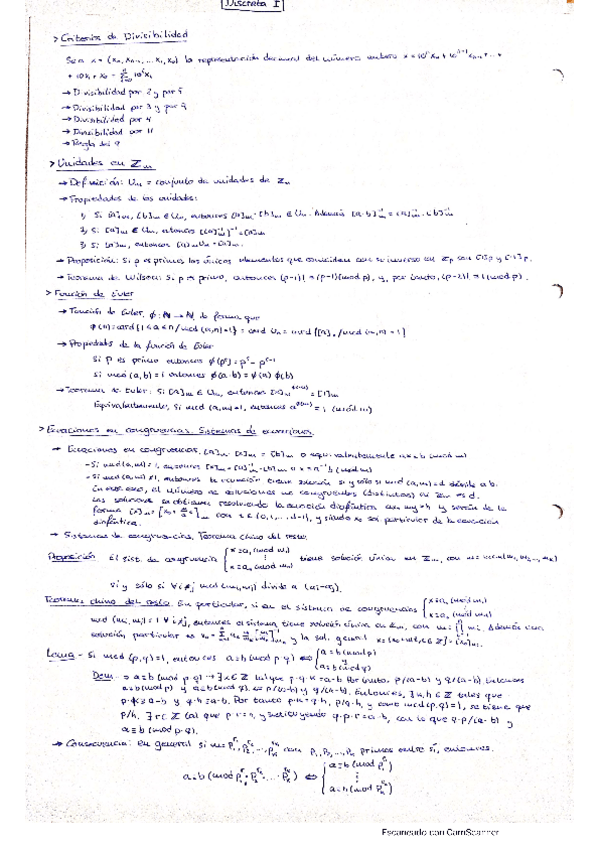 Discreta I
> Criterios de Divisibilidad
Sea x = (xn, xn-1, ... x1, x0) la representación decimal del número entero x = 10ⁿ xn + 10ⁿ⁻¹ xn-1 + ... +
+ 10x1 + x0 =
→ Divisibilidad por 2 y por 5
→ Divisibilidad por 3 y por 9
→ Divisibilidad por 4
→ Divisibilidad por 11
→ Regla del 9
> Unidades en Zm
→ Definición: Um = conjunto de unidades de Zm
→ Propiedades de las unidades:
1) Si [a]m, [b]m ∈ Um, entonces [a]m · [b]m ∈ Um. Además
2) Si [a]m ∈ Um, entonces
3) Si [a]m, entonces
→ Proposición: Si p es primo, los únicos elementos que coinciden con su inverso en Zp son [1]p y [-1]p.
→ Teorema de Wilson: Si p es primo, entonces (p-1)! ≡ (p-1)(mod p), y, por tanto, (p-2)! ≡ 1 (mod p).
> Función de Euler
→ Función de Euler, φ: N → N, de forma que
φ(n) = card {1 ≤ a ≤ n / mcd (a,n) = 1} = card Un
→ Propiedades de la función de Euler
Si p es primo entonces φ(pʳ) = pʳ - pʳ⁻¹
Si mcd (a,b) = 1 entonces φ(a·b) = φ(a) φ(b)
→ Teorema de Euler: Si [a]m ∈ Um, entonces [a]m^φ(m) = [1]m
Equivalentemente, si mcd (a,m) = 1, entonces a^φ(m) ≡ 1 (mód m)
> Ecuaciones en congruencias. Sistemas de ecuaciones.
→ Ecuaciones en congruencias. [a]m · [x]m = [b]m o equivalentemente ax ≡ b (mod m)
- Si mcd (a,m) = 1, entonces
- Si mcd (a,m) ≠ 1, entonces la ecuación tiene solución si y sólo si mcd (a,m) = d divide a b.
En ese caso, el número de soluciones no congruentes (distintas) en Zm es d.
Las soluciones se obtienen resolviendo la ecuación diofántica ax + my = b y serán de la
forma con i ∈ {0, 1, ..., d-1}, y siendo x0 sol particular de la ecuación
diofántica.
→ Sistemas de congruencias. Teorema chino del resto.
Proposición El sist. de congruencia { x ≡ a1 (mod m1) x ≡ a2 (mod m2) tiene solución única en Zm, con
si y sólo si ∀ i≠j mcd (mi, mj) divide a (ai - aj).
Teorema chino del resto. En particular, si en el sistema de congruencias { x ≡ a1 (mod m1)
mcd (mi, mj) = 1 ∀ i≠j, entonces el sistema tiene solución única en Zm, con Además una
solución particular es y la sol. general
Lema - Si mcd (p,q) = 1, entonces a ≡ b (mod p q) ⟺ { a ≡ b (mod p) y a ≡ b (mod q)
Dem. → a ≡ b (mod p q) → ∃ x ∈ Z tal que p·q·x = a-b. Por tanto, p/(a-b) y q/(a-b). Entonces
a ≡ b (mod p) y a ≡ b (mod q). ⟸ p/(a-b) y q/(a-b). Entonces, ∃ k, h ∈ Z tales que
p·k = a-b y q·h = a-b. Por tanto p·k = q·h, p/q·h, y como mcd (p,q) = 1, se tiene que
p/h. ∃ r ∈ Z tal que p·r = h, y sustituyendo q·p·r = a-b, con lo que q·p/(a-b) y
a ≡ b (mod p·q).
→ Consecuencia: en general si con p1, p2, ..., pk primos entre sí, entonces.
a ≡ b (mod p1^r1 · p2^r2 · ... · pk^rk) ⟺ { a ≡ b (mod p1^r1) ⋮ a ≡ b (mod pk^rk)
Escaneado con CamScanner